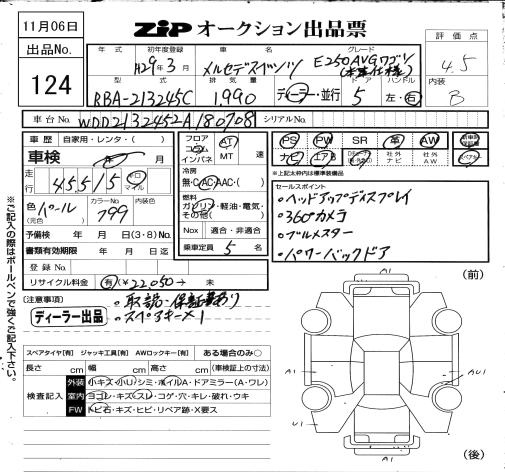 11月06日 ZIP オークション出品票
出品No. 124
年式 初年度登録 車名 グレード 評価点
H29年3月 メルセデスベンツ E250 AVG ワゴン 4.5
(本革仕様)
型式 排気量 ドア ハンドル 内装
RBA-213245C 1,990 ディーラー・並行 5 左・右 B
車台No. WDD2132452A180708 シリアルNo.
車歴 自家用・レンタ・( )
車検 年 月
走行 45515 キロ マイル
色 パール カラーNo. 799 内装色
(元色)
予備検 年 月 日(3・8)No.
書類有効期限 年 月 日迄
登録No.
リサイクル料金 有(¥22,050)→ 未
フロア コラム インパネ AT MT 速
冷房
無・C・AC・AAC・( )
燃料
ガソリン・軽油・電気・その他( )
Nox 適合・非適合
乗車定員 5 名
PS PW SR 革 AW 新車時保証書
ナビ エアB 社外ナビ 社外AW スペアキー
※上記太枠内は標準装備品
セールスポイント
・ヘッドアップディスプレイ
・360°カメラ
・ブルメスター
・パワーバックドア
(注意事項) ・取説・保証書あり
ディーラー出品 ・スペアキー×1
スペアタイヤ[有] ジャッキ工具[有] AWロックキー[有] ある場合のみ○
長さ cm 幅 cm 高さ cm (車検証上の寸法)
検査記入
外装 小キズ・小リ・シミ・ホイルA・ドアミラー(A・ワレ)
室内 ヨゴレ・キズ・スレ・コゲ・穴・キレ・破れ・ウキ
FW トビ石・キズ・ヒビ・リペア跡・X要ス
※ご記入の際はボールペンで強くご記入下さい。
(前)
A1
A1
AU1
U1
A1
(後)